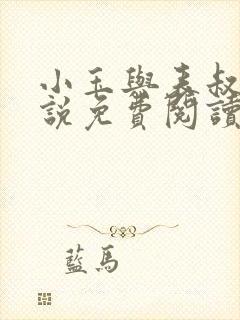 小玉與表叔
說免費閱讀
藍馬